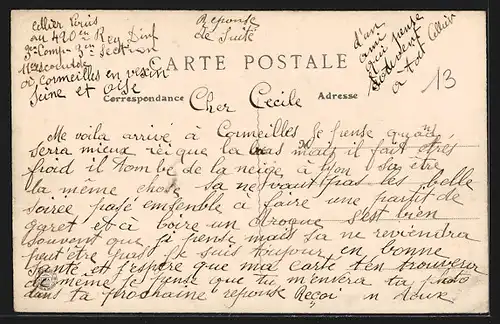 Cellier Péris
au 420en Reg Dinf
3e Comp 3en Section
11er escouade
à Cormeilles en vexin
Seine et oise
Reponse
de Suite
d'un
ami
qui pense
souvent
a toi Cellier
13
CARTE POSTALE
Correspondance
Adresse
Cher Cecile
Me voila arrivé à Cormeilles Je pense qu'on
serra mieux ici que la bas mais il fait tres
froid il tombe de la neige à Lyon sa être
la même chose sa ne vaut pas les belle
soirée pasé ensemble à faire une partit de
garet et à boire un groque s'est bien
souvent que j'i pense mais sa ne reviendra
peut être pas Je suis toujour en bonne
santé et j'espère que ma carte t'en trouvera
de même Je pense que tu m'envera ta photo
dans ta prochaine reponse Reçoi n doux